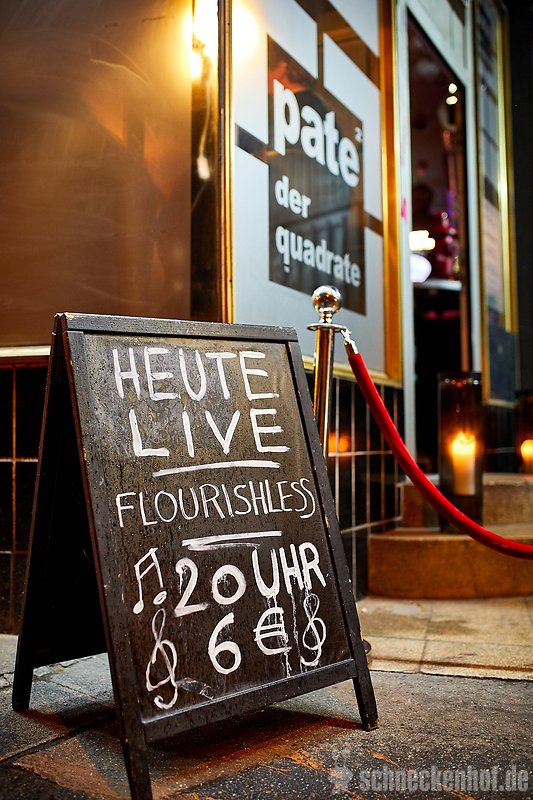 pate²
der
quadrate
HEUTE
LIVE
FLOURISHLESS
20 UHR
6 €
schneckenhof.de